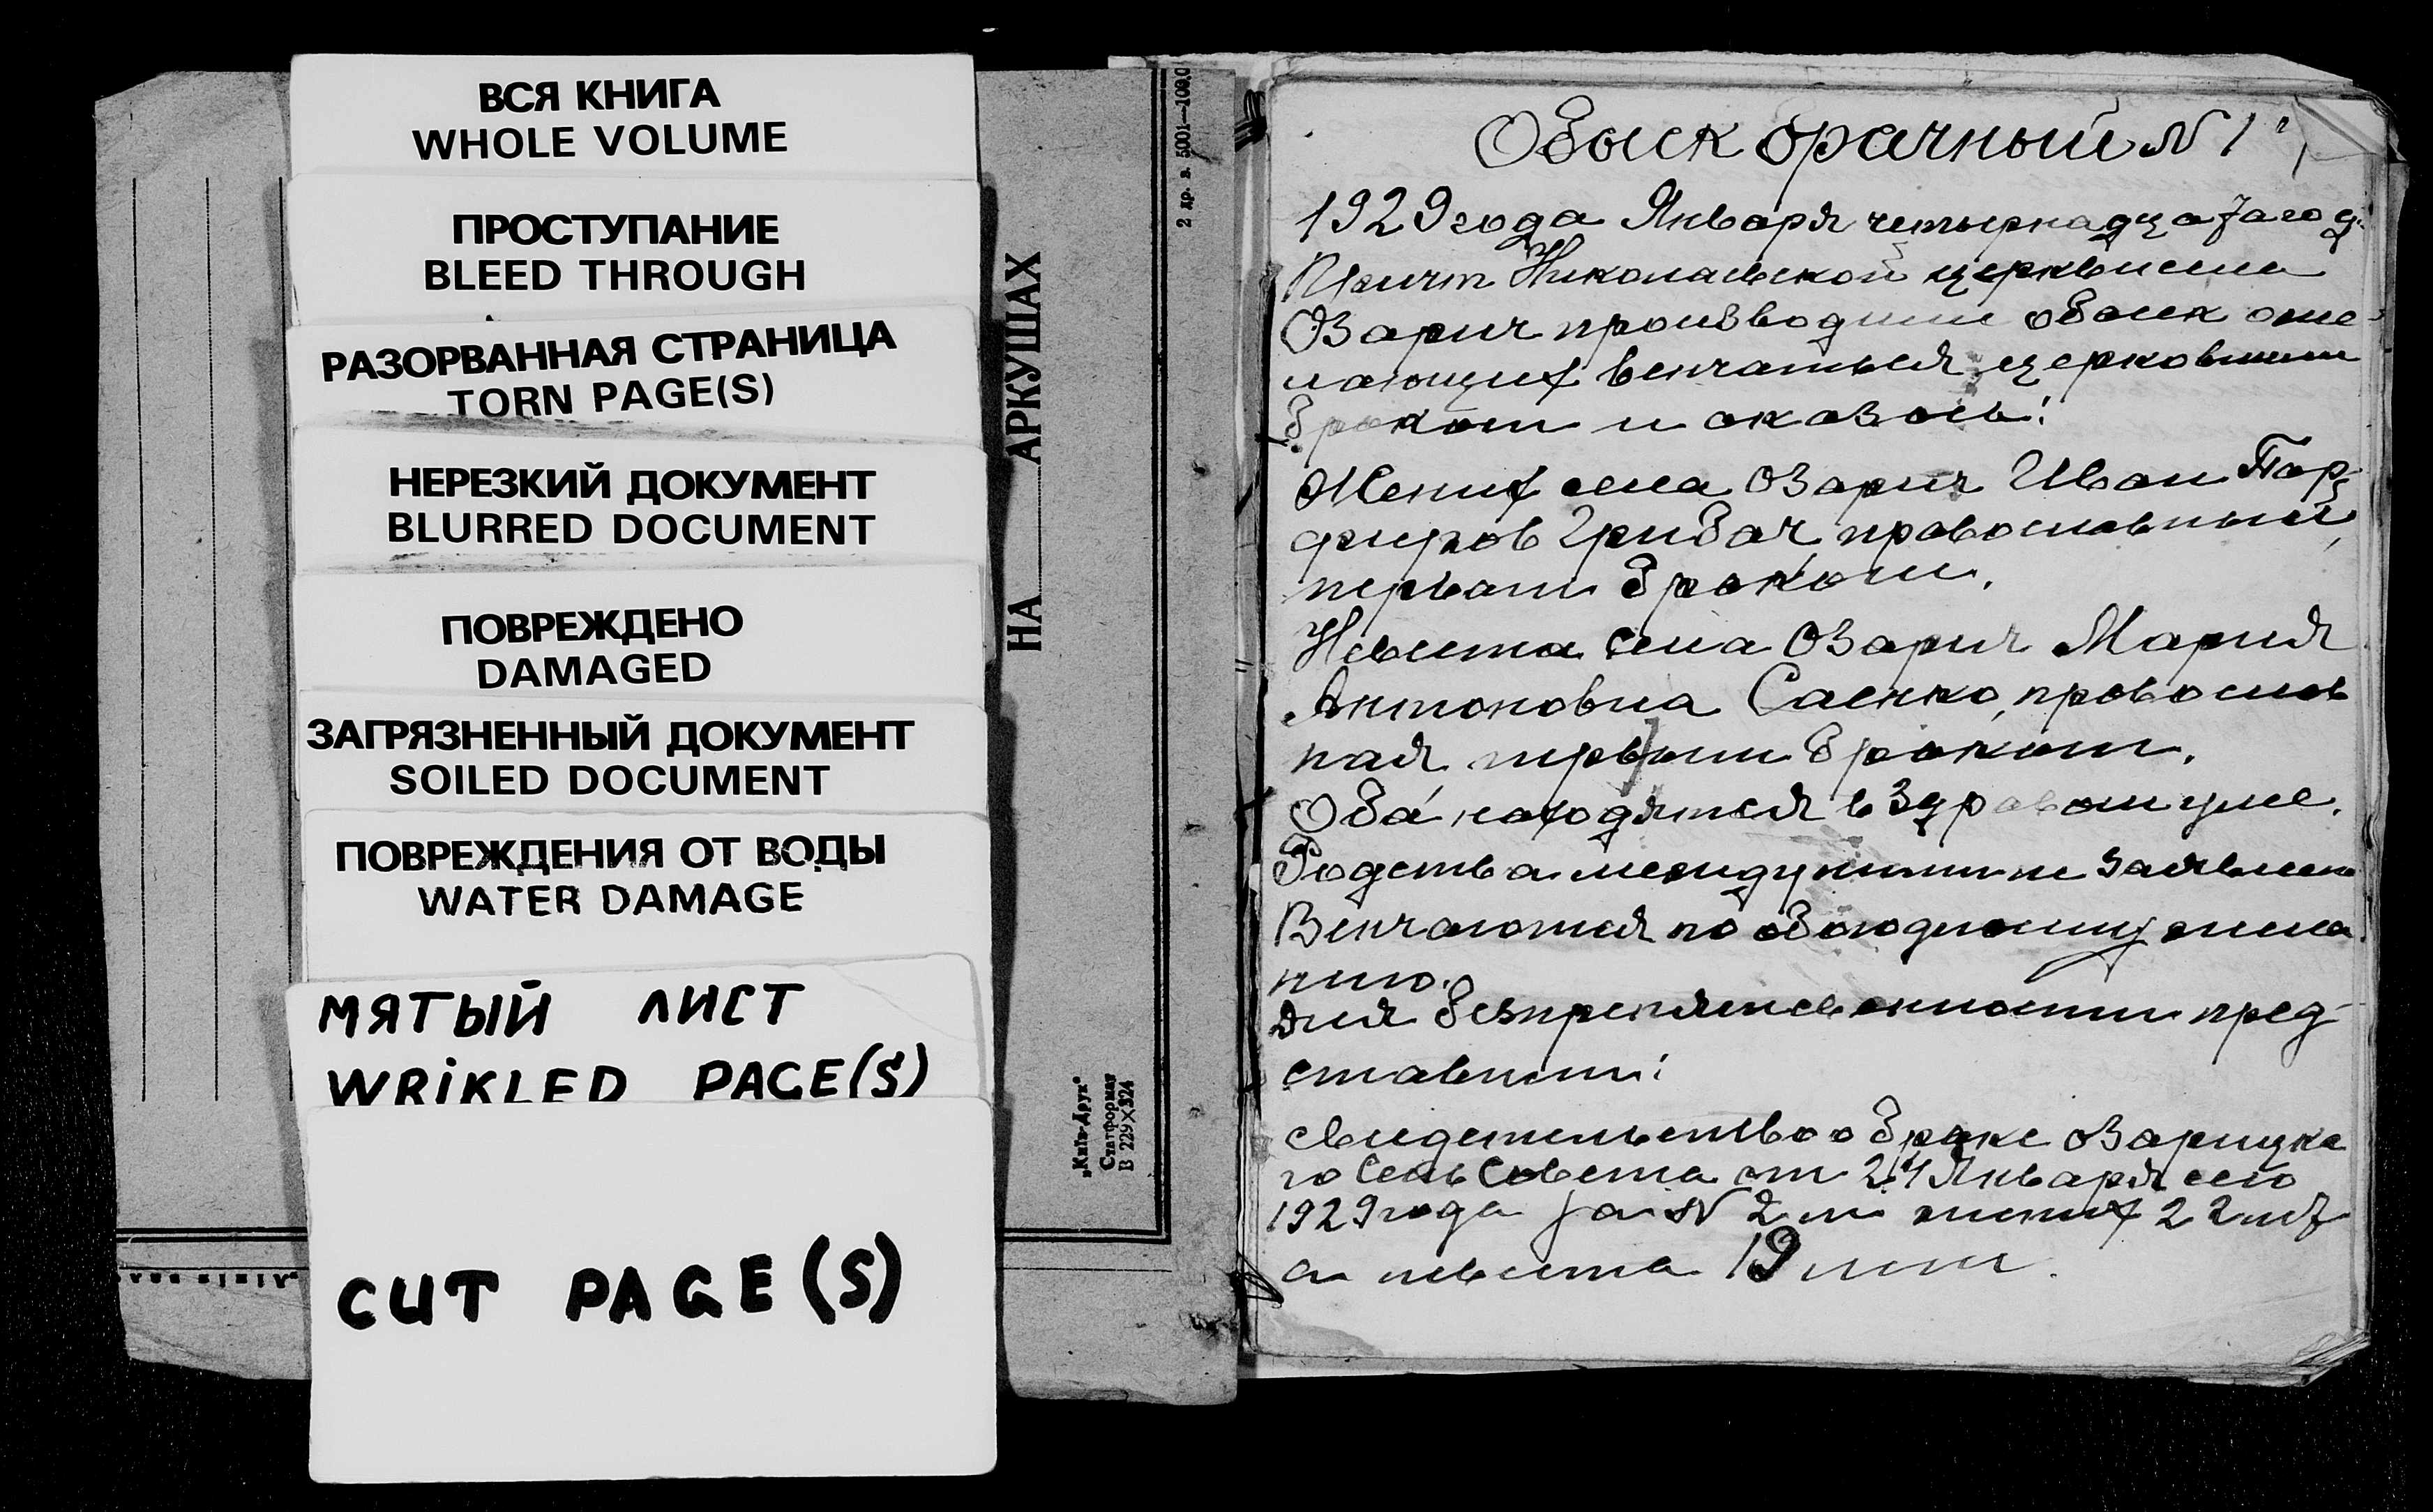 ВСЯ КНИГА
WHOLE VOLUME
ПРОСТУПАНИЕ
BLEED THROUGH
РАЗОРВАННАЯ СТРАНИЦА
TORN PAGE(S)
НЕРЕЗКИЙ ДОКУМЕНТ
BLURRED DOCUMENT
ПОВРЕЖДЕНО
DAMAGED
ЗАГРЯЗНЕННЫЙ ДОКУМЕНТ
SOILED DOCUMENT
ПОВРЕЖДЕНИЯ ОТ ВОДЫ
WATER DAMAGE
МЯТЫЙ ЛИСТ
WRiKLED PAGE(S)
CUT PAGE(S)
НА АРКУШАХ
2 др. з. 5001—1000
„Київ-Друк"
Статформат
В 229×324
Обыск брачный N 1
1929 года Января четырнадцатаго д.
Причт Николаевской церкви села
Озарич производили обыск оже-
лающих венчаться церковным
браком и оказось:
Жених села Озарич Иван Пор-
фиров Грибач, православный,
первым браком.
Невеста села Озарич Мария
Антоновна Саенко, православ
ная первым браком.
Оба находятся в здравом уме.
Родства между ними не заявлено
Венчаются по обоюдному жела
нию.
Для безпрепятсвенности пред-
ставили:
свидетельство о браке Озарицка
го Сельсовета от 24 Января сего
1929 года за N 2 м жених 22 лет
а невеста 19 лет.